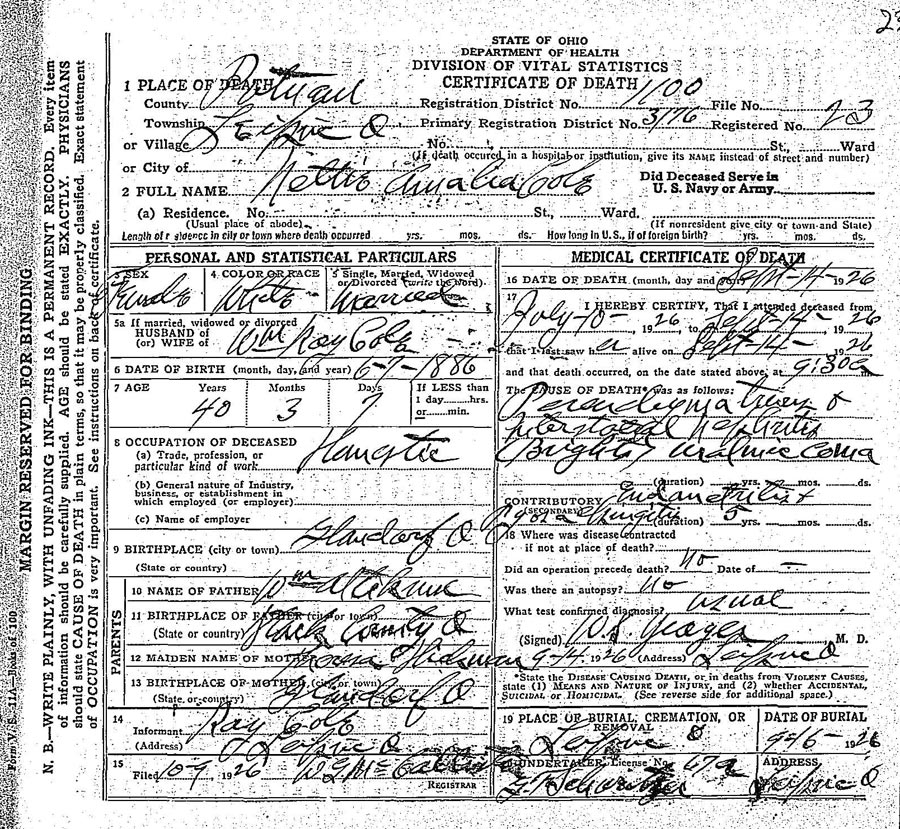 23
STATE OF OHIO
DEPARTMENT OF HEALTH
DIVISION OF VITAL STATISTICS
CERTIFICATE OF DEATH
1 PLACE OF DEATH
County Putnam Registration District No. 1100 File No.
Township Primary Registration District No. 3176 Registered No. 23
or Village Leipsic O No. St., Ward
(If death occured in a hospital or institution, give its NAME instead of street and number)
or City of
2 FULL NAME Nettie Amalia Cole Did Deceased Serve in
U. S. Navy or Army
(a) Residence. No. St., Ward.
(Usual place of abode) (If nonresident give city or town and State)
Length of residence in city or town where death occurred yrs. mos. ds. How long in U. S., if of foreign birth? yrs. mos. ds.
PERSONAL AND STATISTICAL PARTICULARS
3 SEX 4 COLOR OR RACE 5 Single, Married, Widowed
or Divorced (write the word)
Female White Married
5a If married, widowed or divorced
HUSBAND of
(or) WIFE of Wm Ray Cole
6 DATE OF BIRTH (month, day, and year) 6-7-1886
7 AGE Years Months Days If LESS than
1 day hrs.
or min.
40 3 7
8 OCCUPATION OF DECEASED
(a) Trade, profession, or
particular kind of work
(b) General nature of Industry,
business, or establishment in
which employed (or employer)
(c) Name of employer
9 BIRTHPLACE (city or town) Glandorf O
(State or country)
PARENTS
10 NAME OF FATHER Wm
11 BIRTHPLACE OF FATHER (city or town)
(State or country) Stark County O
12 MAIDEN NAME OF MOTHER
13 BIRTHPLACE OF MOTHER (city or town)
(State or country) Glandorf O
14
Informant Ray Cole
(Address) Leipsic O
15
Filed 10-9 1926
REGISTRAR
MEDICAL CERTIFICATE OF DEATH
16 DATE OF DEATH (month, day and year) Sept-14- 1926
17
I HEREBY CERTIFY, That I attended deceased from
July-10- 1926 to Sept-14- 1926
that I last saw her alive on Sept-14- 1926
and that death occurred, on the date stated above, at 9:30a
The CAUSE OF DEATH* was as follows:
Parenchymatous &
Interstitial Nephritis
Brights Uraemic Coma
(duration) yrs. mos. ds.
CONTRIBUTORY Endometritis &
(SECONDARY)
(duration) 5 yrs. mos. ds.
18 Where was disease contracted
if not at place of death?
Did an operation precede death? no Date of —
Was there an autopsy? no
What test confirmed diagnosis? usual
(Signed) Yeager M. D.
9-14 1926 (Address) Leipsic O
*State the DISEASE CAUSING DEATH, or in deaths from VIOLENT CAUSES,
state (1) MEANS AND NATURE OF INJURY, and (2) whether ACCIDENTAL,
SUICIDAL or HOMICIDAL. (See reverse side for additional space.)
19 PLACE OF BURIAL, CREMATION, OR
REMOVAL
Leipsic O
DATE OF BURIAL
9-16- 1926
20 UNDERTAKER, License No. 67a
ADDRESS
Leipsic O
MARGIN RESERVED FOR BINDING
N. B.—WRITE PLAINLY, WITH UNFADING INK—THIS IS A PERMANENT RECORD. Every item
of information should be carefully supplied. AGE should be stated EXACTLY. PHYSICIANS
should state CAUSE OF DEATH in plain terms, so that it may be properly classified. Exact statement
of OCCUPATION is very important. See instructions on back of certificate.
Form V. S. 11A—Books of 100